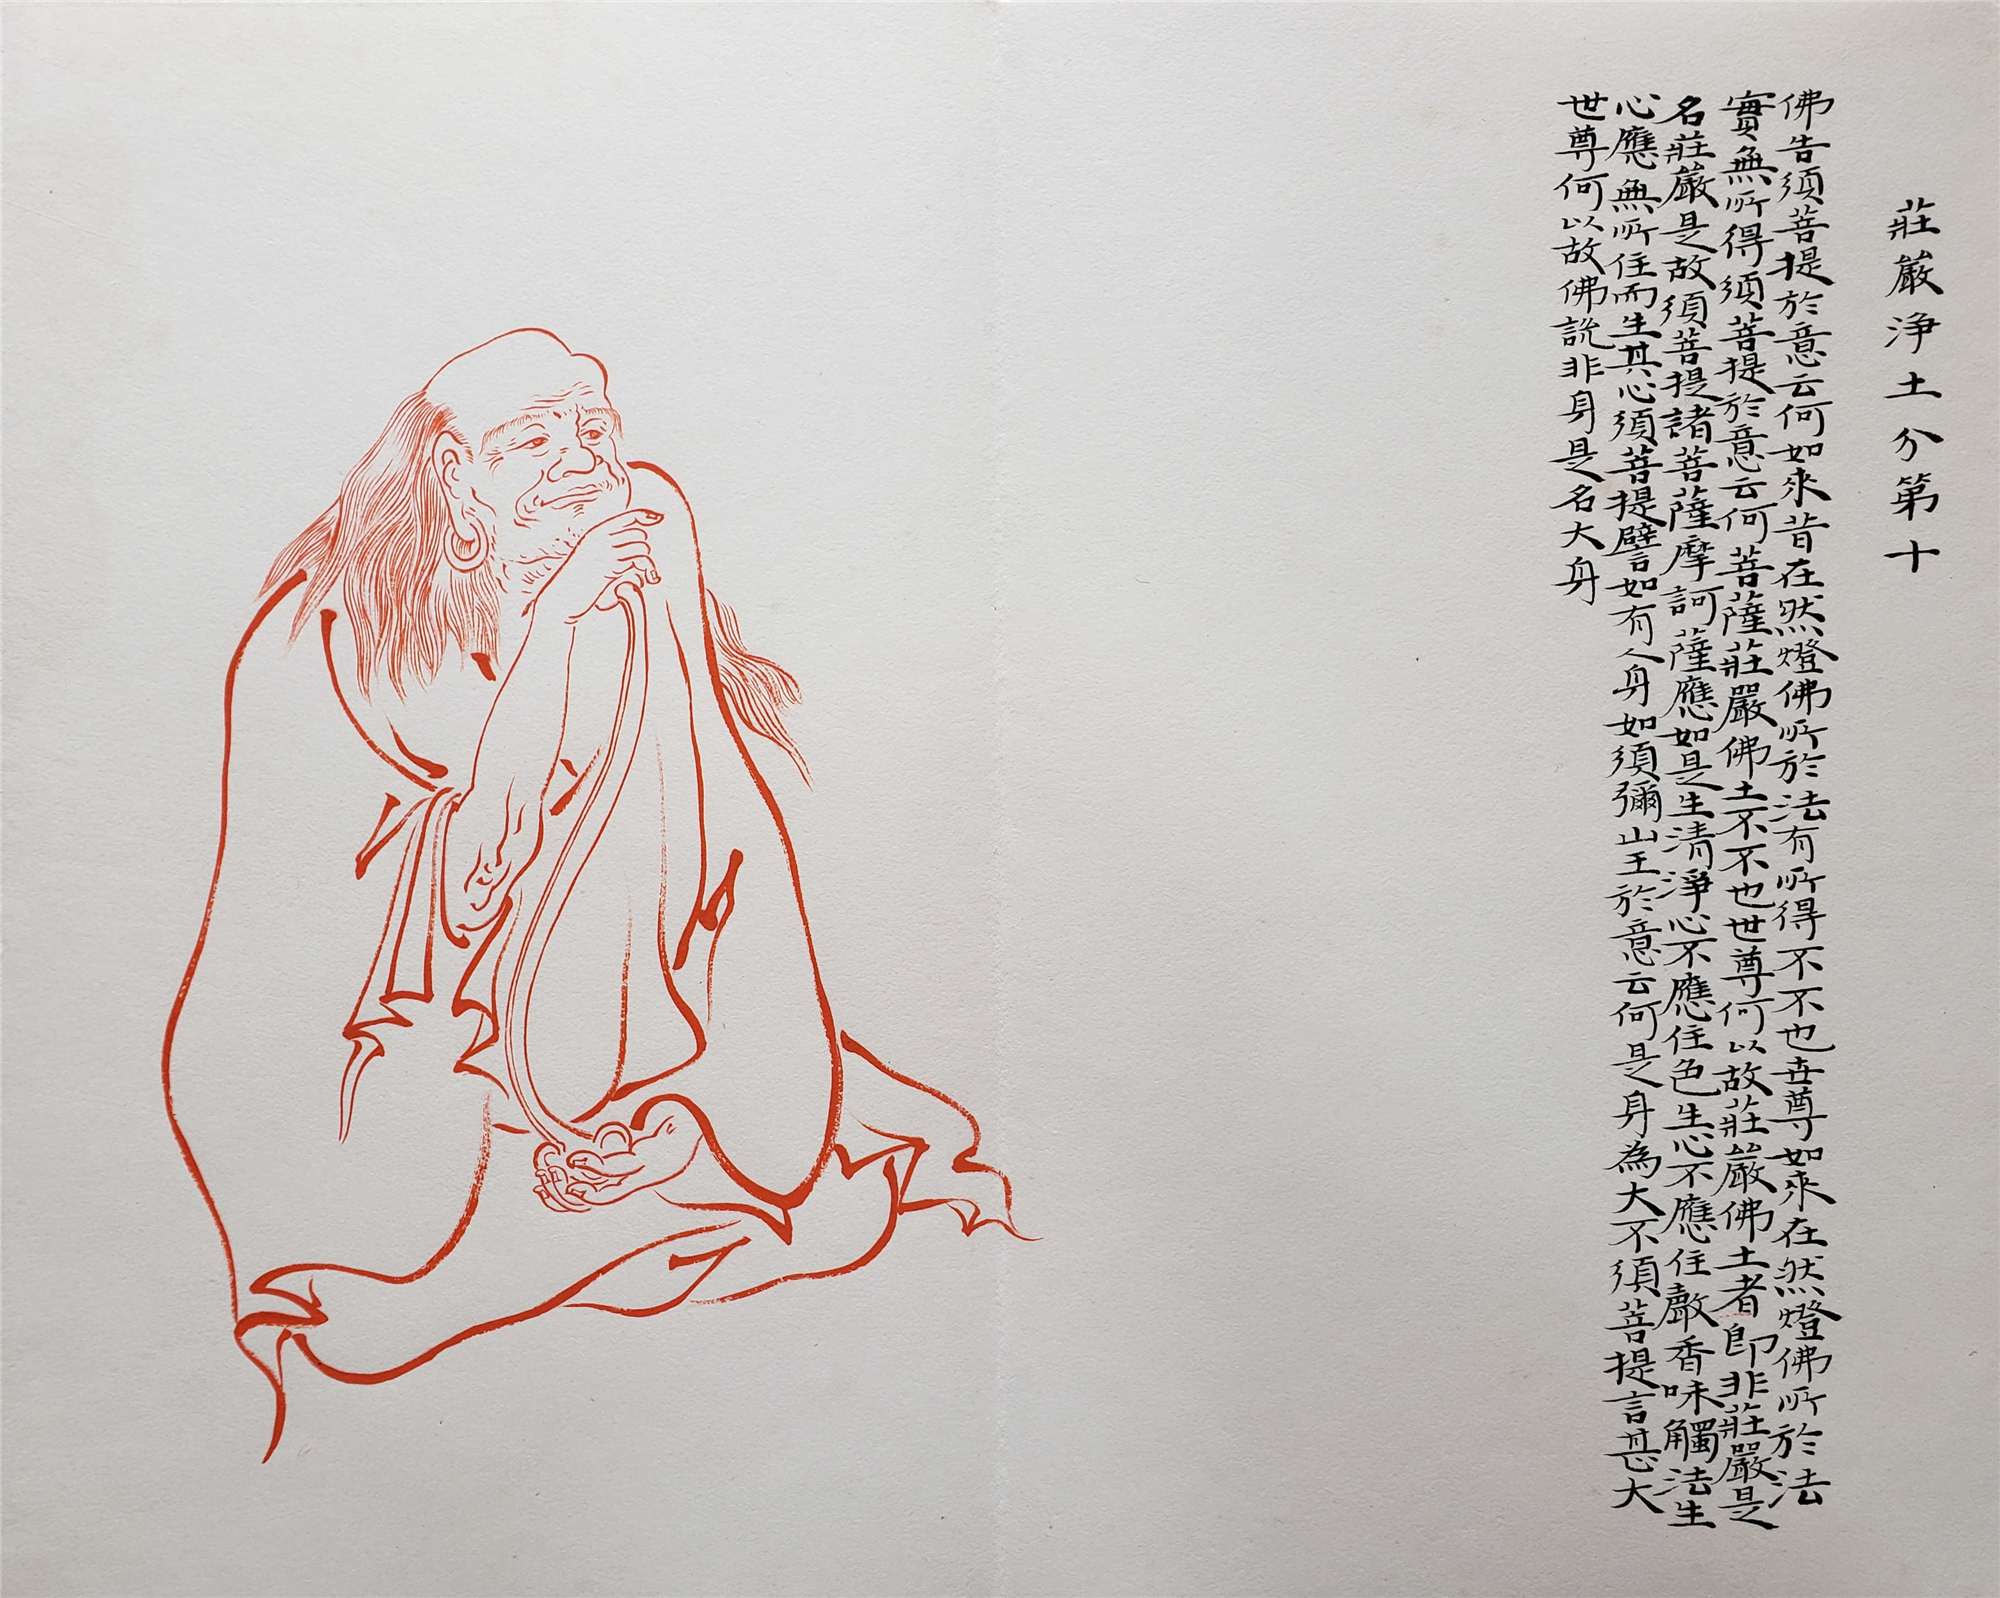 莊嚴浄土分第十
佛告須菩提於意云何如來昔在然燈佛所於法有所得不不也世尊如來在然燈佛所於法
實無所得須菩提於意云何菩薩莊嚴佛土不不也世尊何以故莊嚴佛土者即非莊嚴是
名莊嚴是故須菩提諸菩薩摩訶薩應如是生清淨心不應住色生心不應住聲香味觸法生
心應無所住而生其心須菩提譬如有人身如須彌山王於意云何是身為大不須菩提言甚大
世尊何以故佛説非身是名大身